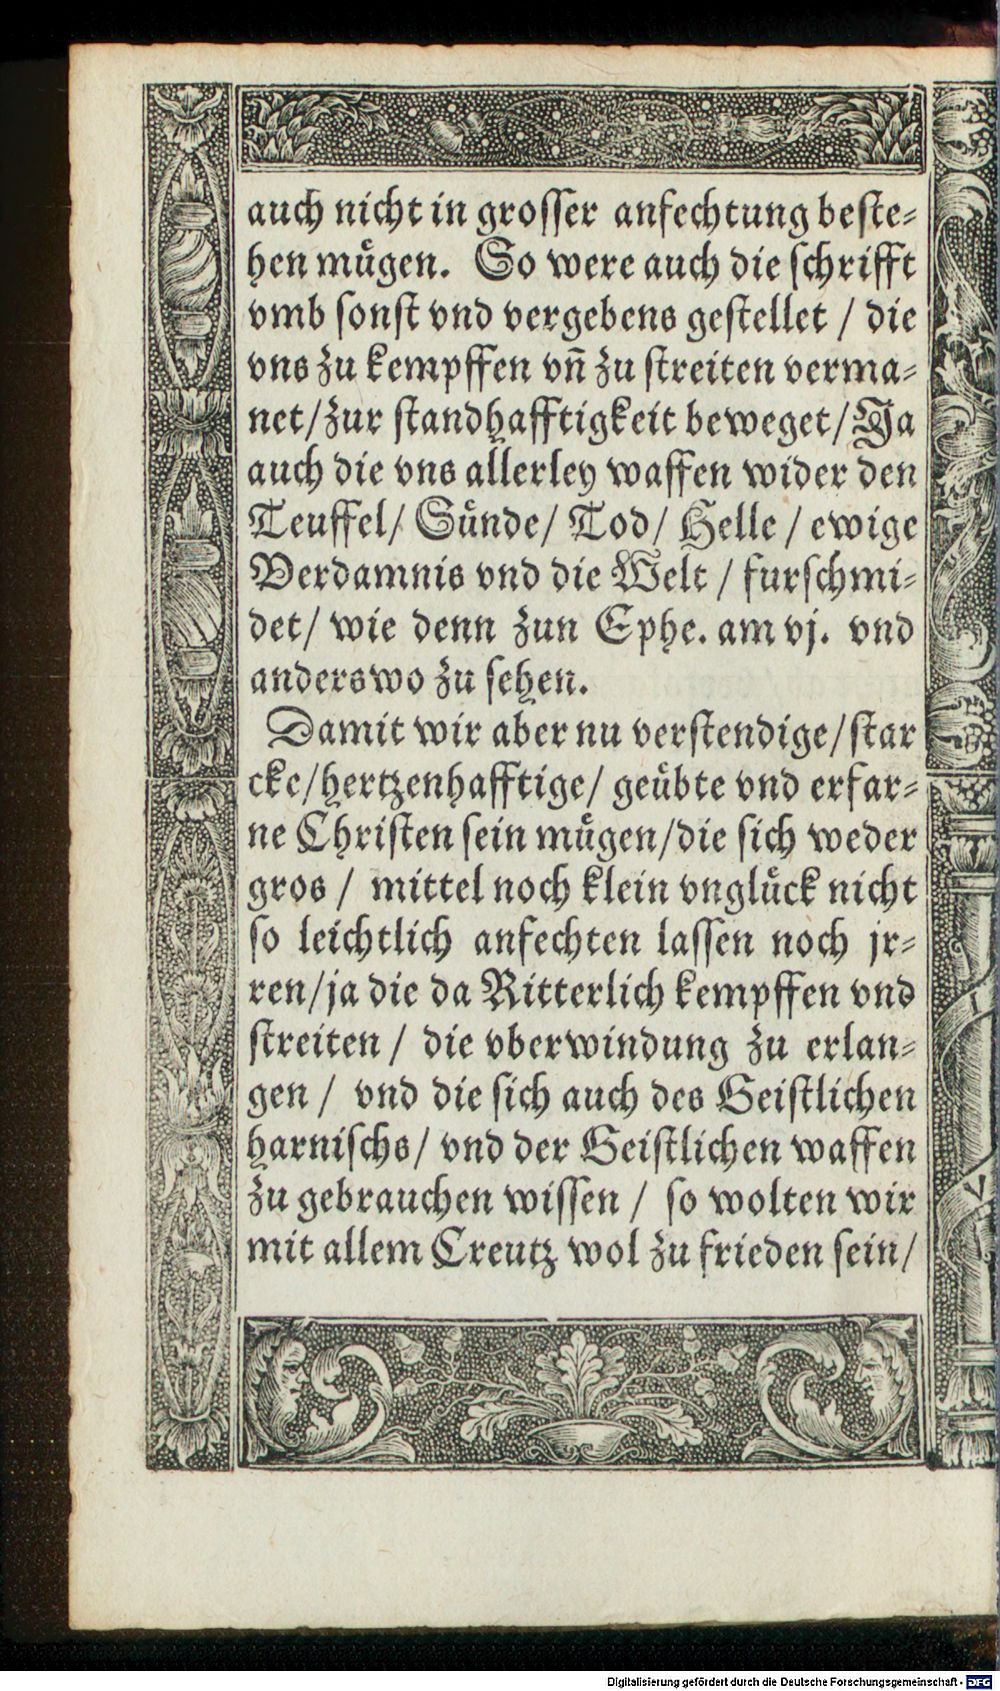 auch nicht in groſſer anfechtung beſte⸗
hen muͤgen. So were auch die ſchrifft
vmb ſonſt vnd vergebens geſtellet / die
vns zu kempffen vn̄ zu ſtreiten verma⸗
net/zur ſtandhafftigkeit beweget/Ja
auch die vns allerley waffen wider den
Teuffel/ Suͤnde/ Tod/ Helle / ewige
Verdamnis vnd die Welt / furſchmi⸗
det/ wie denn zun Ephe. am vj. vnd
anderswo zu ſehen.
Damit wir aber nu verſtendige/ſtar
cke/hertzenhafftige/ geuͤbte vnd erfar⸗
ne Chriſten ſein muͤgen/die ſich weder
gros / mittel noch klein vngluͤck nicht
ſo leichtlich anfechten laſſen noch jr⸗
ren/ja die da Ritterlich kempffen vnd
ſtreiten / die vberwindung zu erlan⸗
gen / vnd die ſich auch des Geiſtlichen
harniſchs/ vnd der Geiſtlichen waffen
zu gebrauchen wiſſen / ſo wolten wir
mit allem Creutz wol zu frieden ſein/
Digitalisierung gefördert durch die Deutsche Forschungsgemeinschaft - DFG